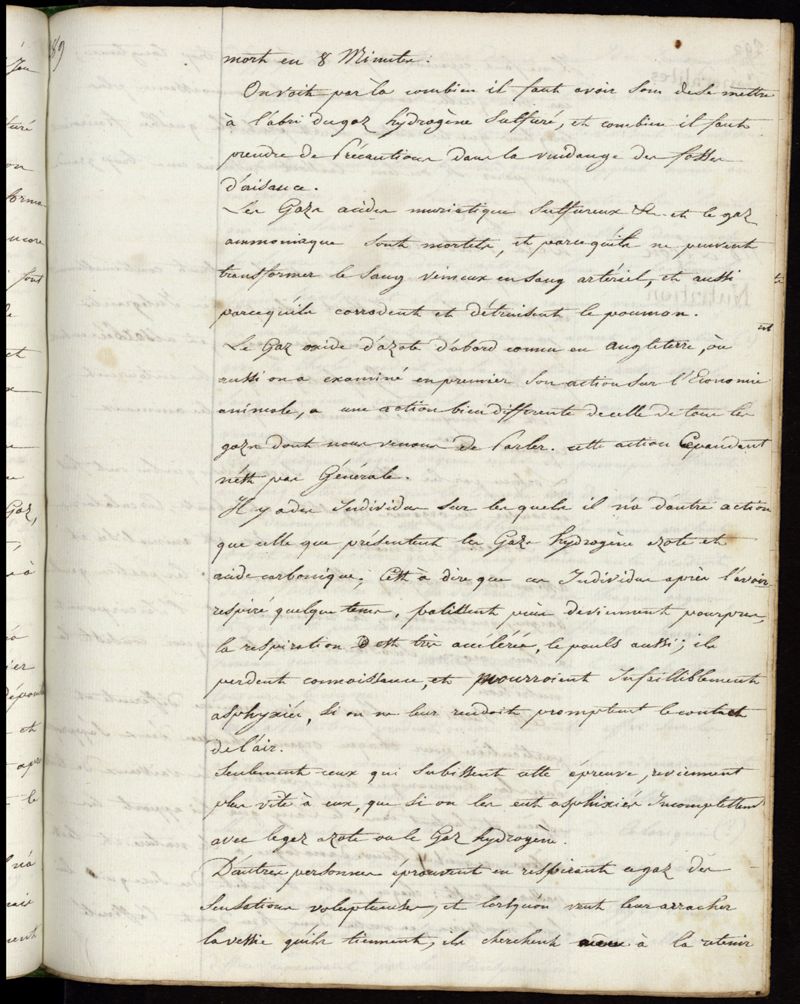 89
mort en 8 Minutes.
On voit par la combien il faut avoir soin de se mettre
à l'abri du gaz hydrogène Sulfuré, et combien il faut
prendre de Précautions dans la vuidange des fosses
d'aisance.
Les Gazs acides muriatique sulfureux &c. et le gaz
ammoniaque sont mortels, et parcequ'ils ne peuvent
transformer le Sang veineux en sang artériel, et aussi
parcequ'ils corrodent et détruisent le poumon.
Le Gaz oxide d'azote d'abord connu en angleterre, où
aussi on a examiné en premier son action sur l'Economie
animale, a une action bien differente de celle de tous les
gazs dont nous venons de Parler. cette action Cependant
n'est pas Générale.
Il y a des Individus sur les quels il n'a d'autre action
que celle que présentent les Gazs hydrogène azote et
acide carbonique; C'est à dire que ces Individus après l'avoir
respiré quelque tems, palissent puis deviennent pourpres,
la respiration est très accélérée, le pouls aussi; ils
perdent connoissance, et pourroient Infailliblement
asphyxiés, si on ne leur rendoit promptent le contact
de l'air.
Seulement ceux qui subissent cette épreuve, reviennent
plus vite à eux, que si on les eut asphixiés Incomplettem̄t
avec le gaz azote ou le Gaz hydrogène.
D'autres personnes éprouvent en respirant ce gaz des
sensations voluptueuses, et lorsqu'on veut leur arracher
la vessie qu'ils tiennent, ils cherchent à la retenir